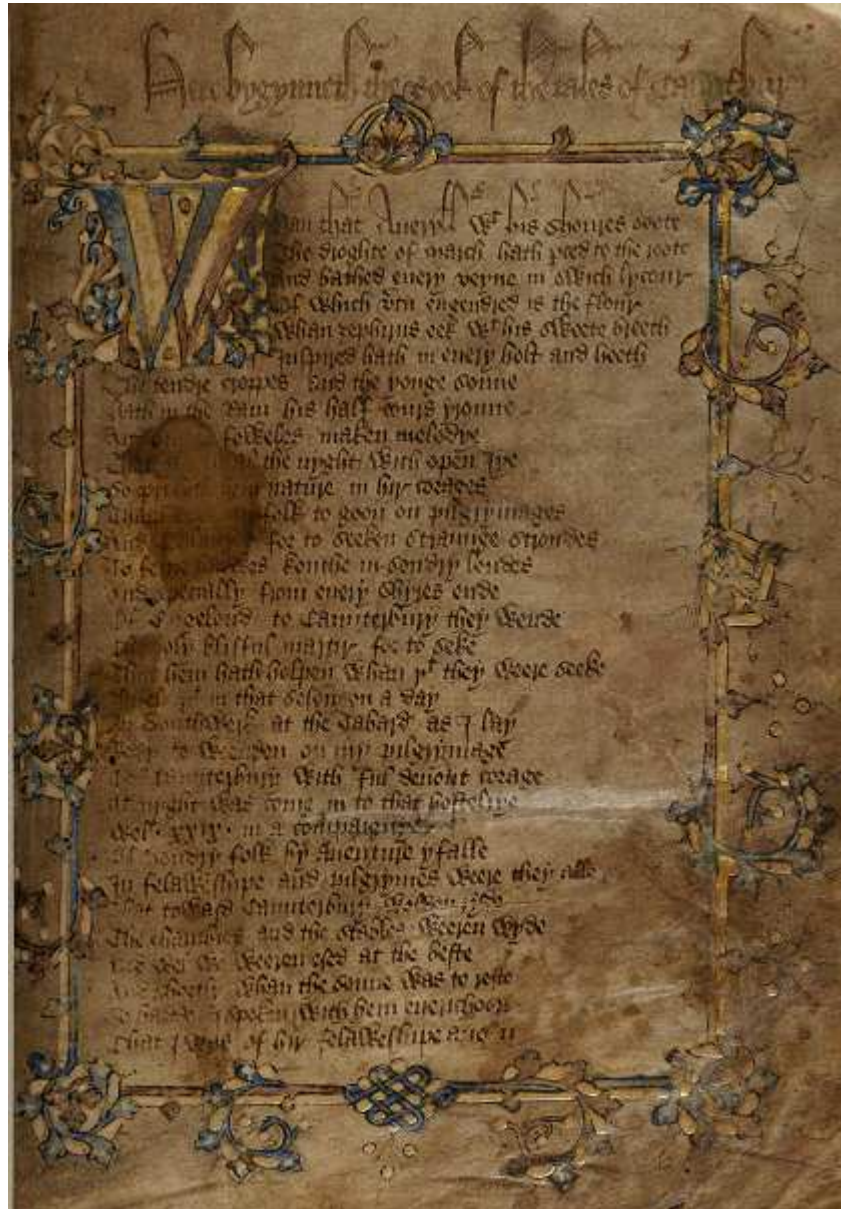 Here bygynneth the Book of the tales of Caunterbury
Whan that Aueryll wt his shoures soote
The droghte of march hath pced to the roote
And bathed euery veyne in swich lycour
Of which vtu engendred is the flour
Whan zephirus eek wt his sweete breeth
Inspired hath in euery holt and heeth
The tendre croppes and the yonge sonne
hath in the Ram his half cours yronne
foweles maken melodye
the nyght with open Iye
nature in hir corages
folk to goon on pilgrymages
for to seeken straunge strondes
kouthe in sondry londes
And specially from euery shyres ende
Of Engelond to Caunterbury they wende
The holy blisful martir for to seke
That hem hath holpen whan yt they weere seeke
in that seson on a day
In Southwerk at the Tabard as I lay
Redy to wenden on my pilgrymage
To Caunterbury with ful deuout corage
At nyght was come in to that hostelrye
Wel .xxix. in a compaignye
Of sondry folk by auenture yfalle
In felaweshipe and pilgrymes weere they alle
That toward Caunterbury wolden ryde
The chambres and the stables weeren wyde
And wel we weeren esed at the beste
And shortly whan the sonne was to reste
So hadde I spoken with hem euerichoon
That I was of hir felaweshipe anon